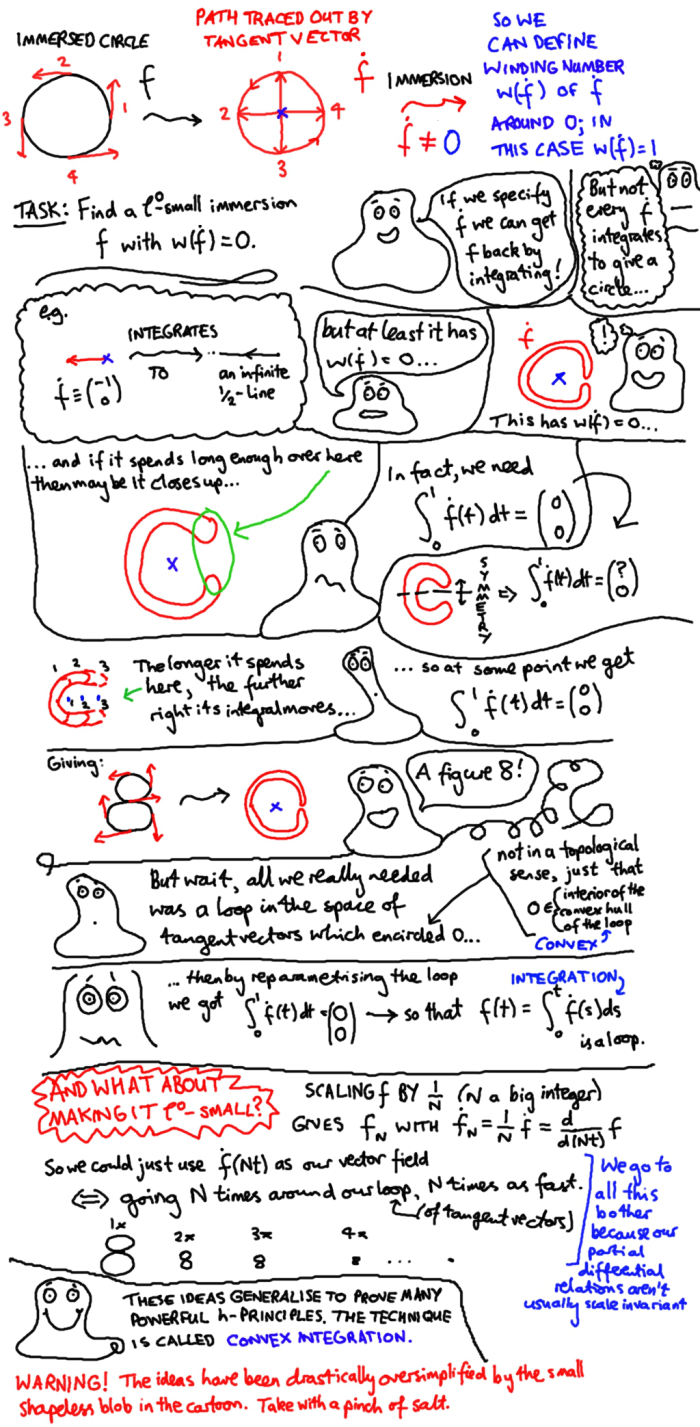 IMMERSED CIRCLE
PATH TRACED OUT BY
TANGENT VECTOR
SO WE
CAN DEFINE
WINDING NUMBER
w(ḟ) OF ḟ
AROUND 0; IN
THIS CASE w(ḟ)=1
2
3
1
4
f
1
2
4
3
ḟ
IMMERSION
ḟ ≠ 0
TASK: Find a C⁰-small immersion
f with w(ḟ)=0.
If we specify
ḟ we can get
f back by
integrating!
But not
every ḟ
integrates
to give a
circle...
e.g.
INTEGRATES
TO
ḟ ≡ (-1 0)
an infinite
½-line
but at least it has
w(ḟ)=0...
ḟ
!
This has w(ḟ)=0...
... and if it spends long enough over here
then maybe it closes up...
In fact, we need
∫₀¹ ḟ(t) dt = (0 0)
SYMMETRY
⇒ ∫₀¹ ḟ(t) dt = (? 0)
1 2 3
1 2 3
The longer it spends
here, the further
right its integral moves...
... so at some point we get
∫₀¹ ḟ(t) dt = (0 0)
Giving:
A figure 8!
But wait, all we really needed
was a loop in the space of
tangent vectors which encircled 0...
not in a topological
sense, just that
0 ∈ {interior of the
convex hull
of the loop
CONVEX
... then by reparametrising the loop
we got ∫₀¹ ḟ(t) dt = (0 0) → so that f(t) = ∫₀ᵗ ḟ(s) ds
is a loop.
INTEGRATION
AND WHAT ABOUT
MAKING IT C⁰-SMALL?
SCALING f BY 1/N (N a big integer)
GIVES f_N WITH ḟ_N = 1/N ḟ = d/d(Nt) f
So we could just use ḟ(Nt) as our vector field
⇔ going N times around our loop, N times as fast.
(of tangent vectors)
1x 2x 3x 4x
8 8 8 8 ....
We go to
all this
bother
because our
partial
differential
relations aren't
usually scale invariant
THESE IDEAS GENERALISE TO PROVE MANY
POWERFUL h-PRINCIPLES. THE TECHNIQUE
IS CALLED CONVEX INTEGRATION.
WARNING! The ideas have been drastically oversimplified by the small
shapeless blob in the cartoon. Take with a pinch of salt.